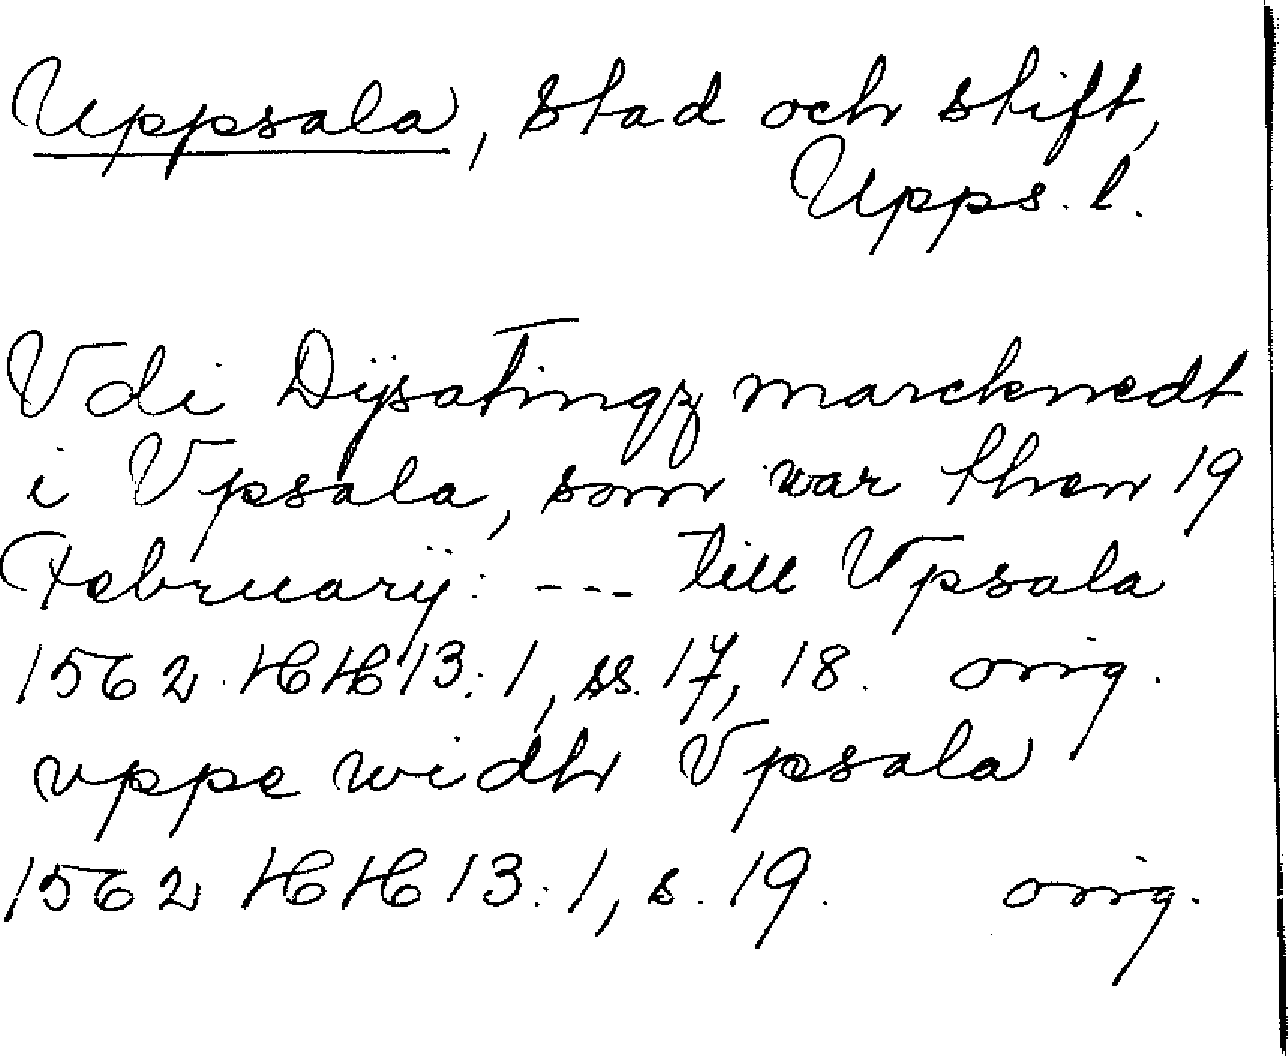 Uppsala, stad och stift,
Upps. l.
Vdi Dÿsatingz marcknedt
i Vpsala, som war then 19
Februarÿ: --- till Vpsala
1562 HH 13:1, ss. 17, 18. orig.
vppe widh Vpsala
1562 HH 13:1, s. 19. orig.